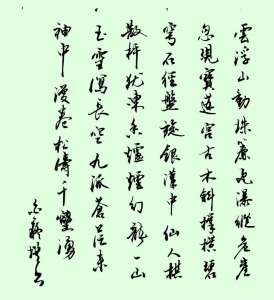 雲浮山動珠簾瀑縱危崖
忽現寶蓮宮古木斜撐橫碧
穹石徑盤旋銀漢中仙人棋
散枰猶凍香爐煙幻一山
玉雪瀉長空九派蒼茫來
袖中漫卷松濤千壑湧